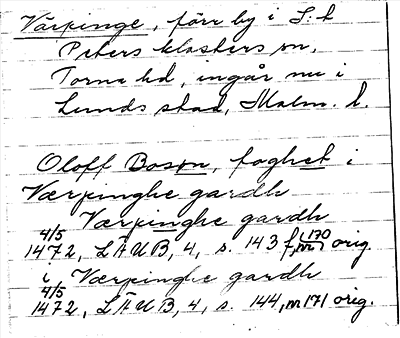 Värpinge, förr by i S:t
Peters klosters sn,
Torna hd, ingår nu i
Lunds stad, Malm. l.
Oloff Boson, foghet i
Værpinghe gardh
Værpinghe gardh
4/5 1472, LÄUB, 4, s. 143 f, nr 170 orig.
i Værpinghe gardh
4/5 1472, LÄUB, 4, s. 144, nr 171 orig.